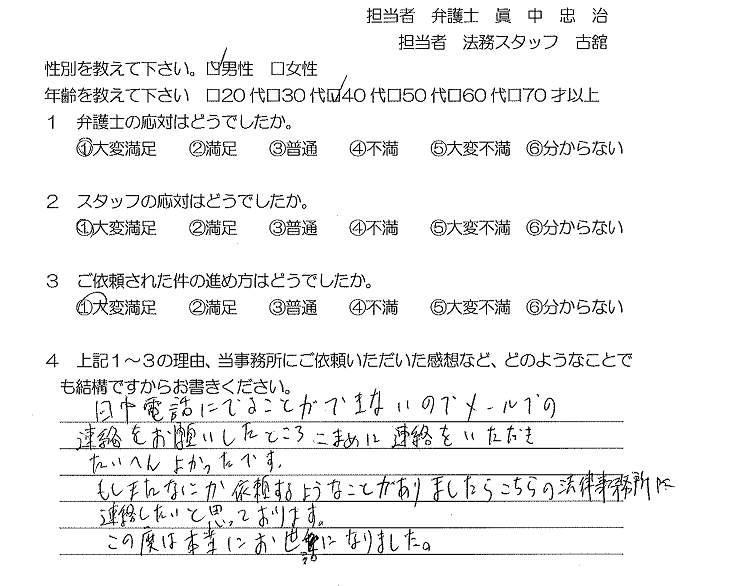 担当者 弁護士 眞 中 忠 治
担当者 法務スタッフ 古舘
性別を教えて下さい。☑男性 □女性
年齢を教えて下さい □20代□30代☑40代□50代□60代□70才以上
1 弁護士の応対はどうでしたか。
①大変満足 ②満足 ③普通 ④不満 ⑤大変不満 ⑥分からない
2 スタッフの応対はどうでしたか。
①大変満足 ②満足 ③普通 ④不満 ⑤大変不満 ⑥分からない
3 ご依頼された件の進め方はどうでしたか。
①大変満足 ②満足 ③普通 ④不満 ⑤大変不満 ⑥分からない
4 上記1～3の理由、当事務所にご依頼いただいた感想など、どのようなことで
も結構ですからお書きください。
日中電話にでることができないのでメールでの
連絡をお願いしたところ こまめに連絡をいただき
たいへんよかったです。
もしまたなにか依頼するようなことがありましたらこちらの法律事務所に
連絡したいと思っております。
この度は本業にお世話になりました。